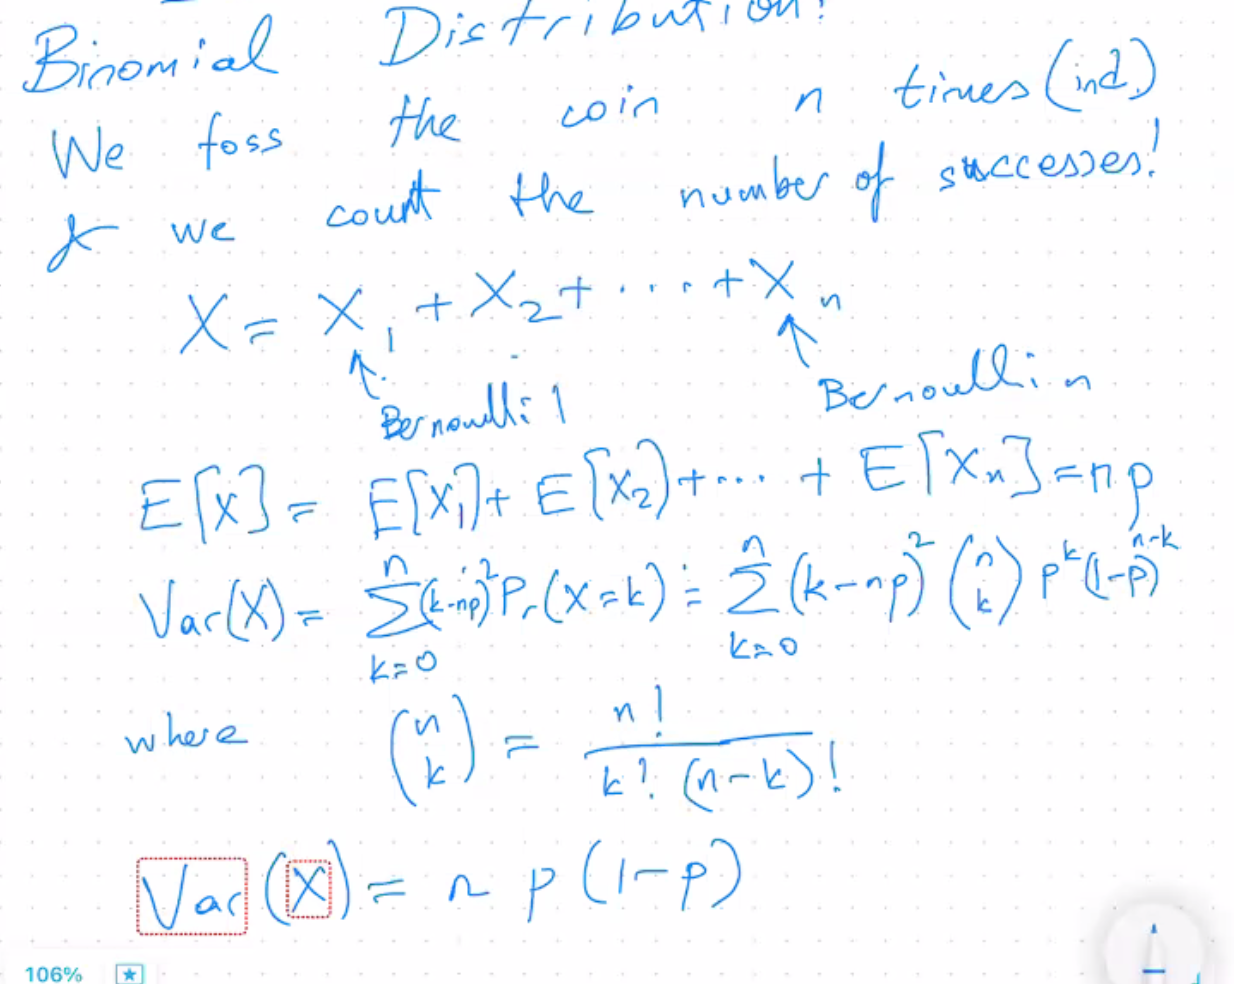 Binomial Distribution!
We toss the coin n times (ind.)
& we count the number of successes!
X = X₁ + X₂ + .... + Xₙ
Bernoulli 1 Bernoulli n
E[X] = E[X₁] + E[X₂] + ... + E[Xₙ] = np
Var(X) = ∑ₖ₌₀ⁿ (k-np)² Pr(X=k) = ∑ₖ₌₀ⁿ (k-np)² (n k) pᵏ(1-p)ⁿ⁻ᵏ
where (n k) = n! / k! (n-k)!
Var(X) = n p (1-p)
106%